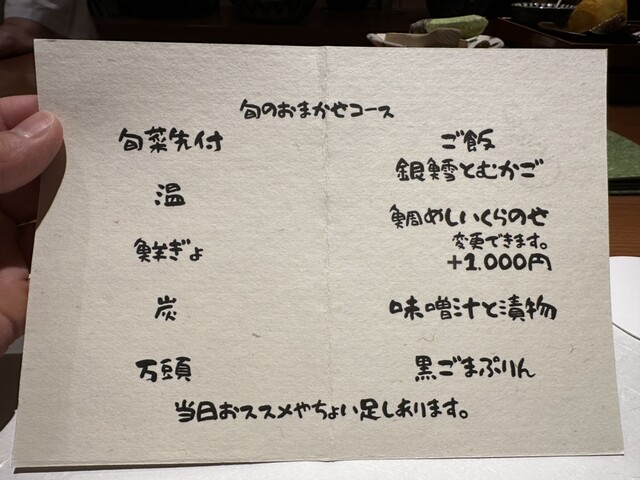 旬のおまかせコース
旬菜先付
温
鮮ぎょ
炭
万頭
ご飯
銀鱈とむかご
鯛めしいくらのせ
変更できます。
+1.000円
味噌汁と漬物
黒ごまぷりん
当日おススメやちょい足しあります。